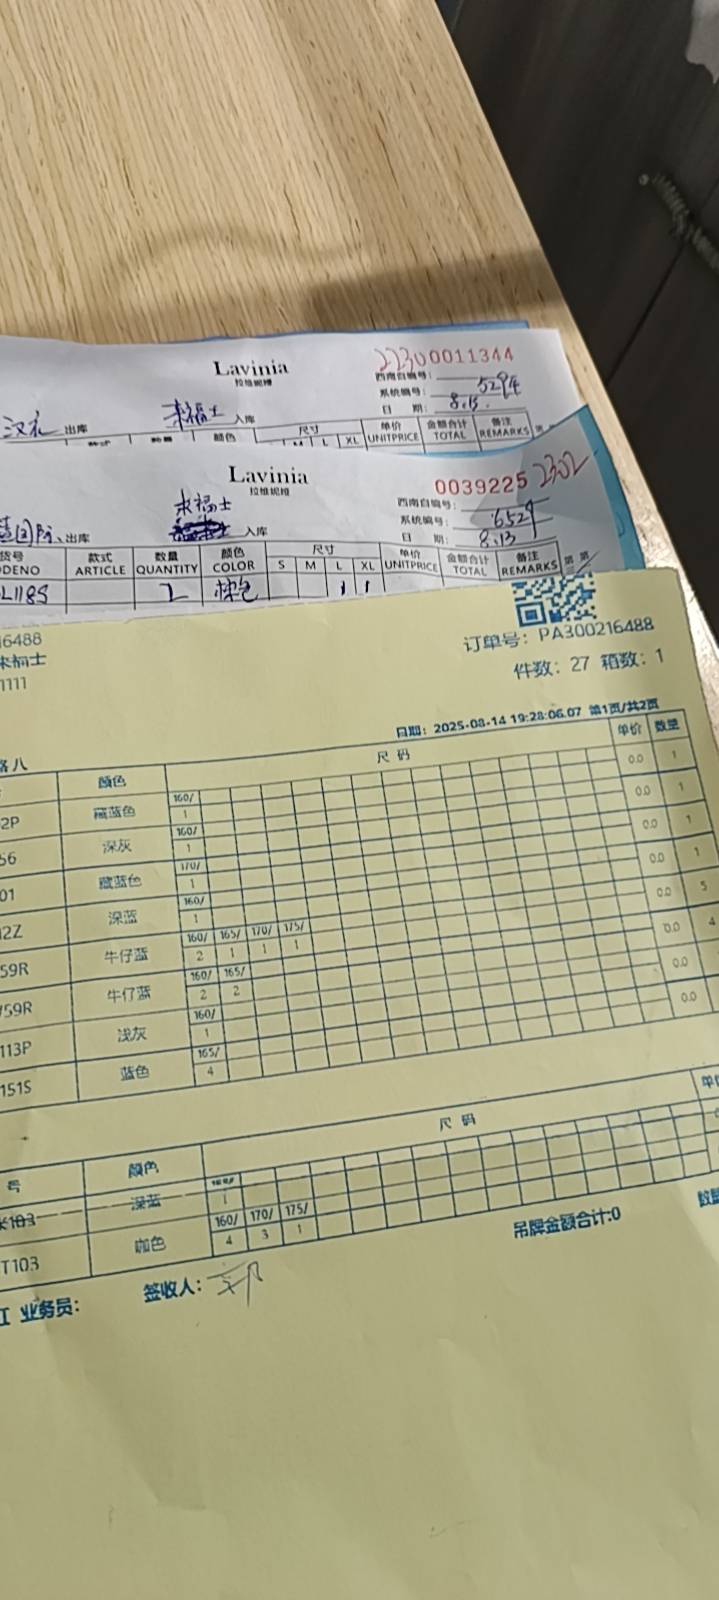 Lavinia
拉维妮娅
2230 0011344
西南自编号:
系统编号: 5294
日 期: 8.15.
汉礼 出库 来福士 入库
款式 数量 颜色 尺寸 M L XL 单价 UNITPRICE 金额合计 TOTAL 备注 REMARKS
Lavinia
拉维妮娅
0039225 2302
西南自编号:
系统编号: 6529
日 期: 8.13
国际 出库 来福士 入库
货号 款式 数量 颜色 尺寸 单价 金额合计 备注
DENO ARTICLE QUANTITY COLOR S M L XL UNITPRICE TOTAL REMARKS
L118S 2 棕色 1 1
16488
来福士
1111
订单号: PA300216488
件数: 27 箱数: 1
路八
日期: 2025-08-14 19:28:06.07 第1页/共2页
颜色 尺 码 单价 数量
2P 藏蓝色 160/ 0.0 1
1
56 深灰 160/ 0.0 1
1
01 藏蓝色 170/ 0.0 1
1
2Z 深蓝 160/ 0.0 1
1
59R 牛仔蓝 160/ 165/ 170/ 175/ 0.0 5
2 1 1 1
59R 牛仔蓝 160/ 165/ 0.0 4
2 2
113P 浅灰 160/ 0.0
1
151S 蓝色 165/ 0.0
4
号 颜色 尺 码 单价
103 深蓝 160/
1
T103 咖色 160/ 170/ 175/
4 3 1
吊牌金额合计:0
业务员: 签收人: 邓